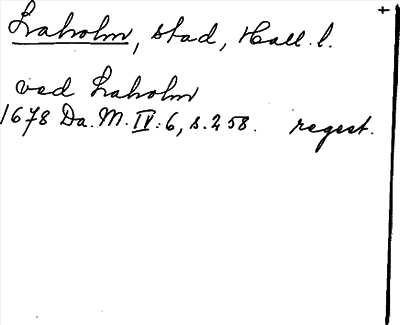 Laholm, stad, Hall. l. +
ved Laholm
1678 Da. M. IV: 6, s. 258. regest.